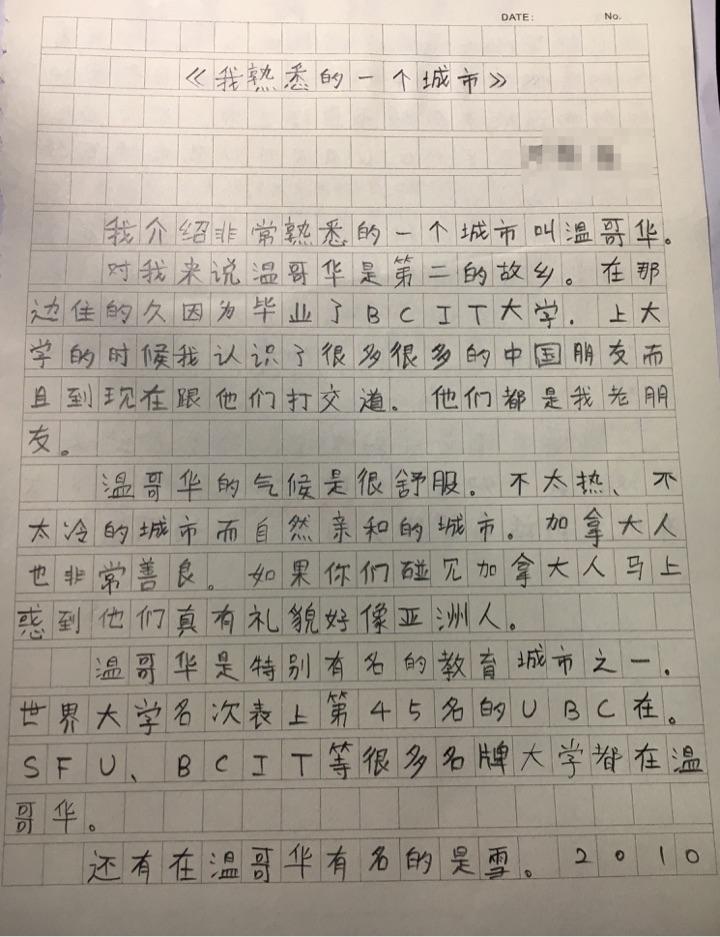 DATE: No.
《我熟悉的一个城市》
我介绍非常熟悉的一个城市叫温哥华。
对我来说温哥华是第二的故乡。在那
边住的久因为毕业了BCIT大学. 上大
学的时候我认识了很多很多的中国朋友而
且到现在跟他们打交道。他们都是我老朋
友。
温哥华的气候是很舒服。不太热、不
太冷的城市而自然亲和的城市。加拿大人
也非常善良。如果你们碰见加拿大人马上
惑到他们真有礼貌好像亚洲人。
温哥华是特别有名的教育城市之一.
世界大学名次表上第45名的UBC在。
SFU、BCIT等很多名牌大学都在温
哥华。
还有在温哥华有名的是雪。2010